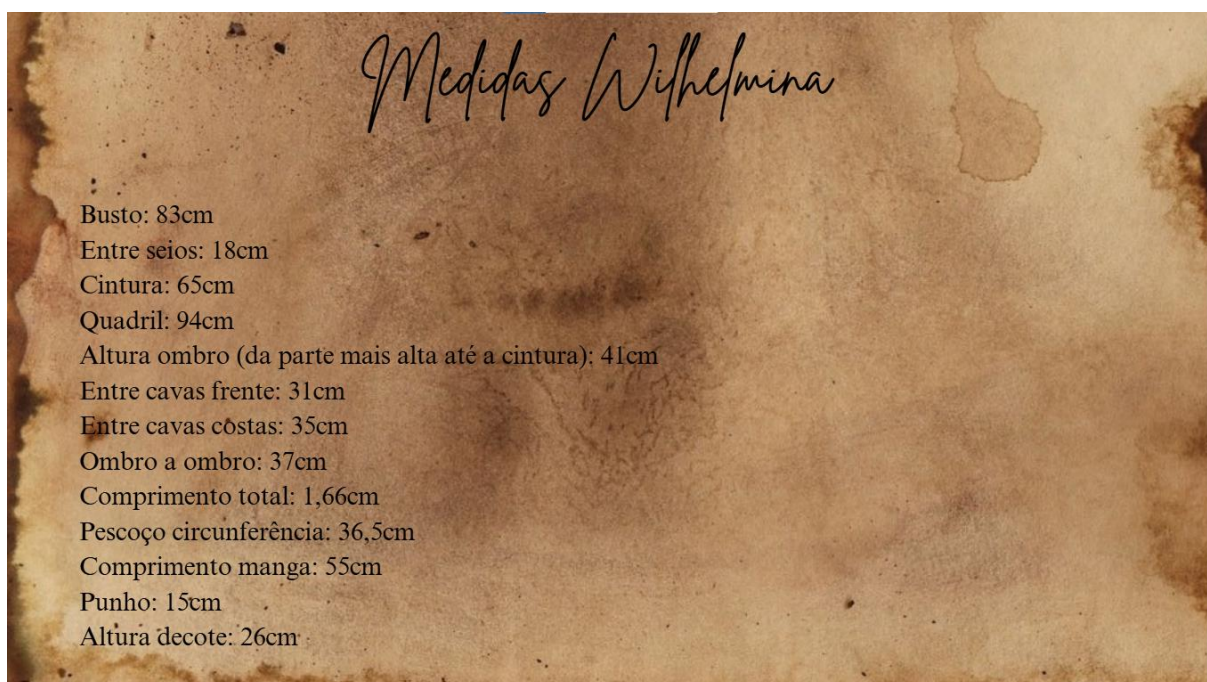 Medidas Wilhelmina
Busto: 83cm
Entre seios: 18cm
Cintura: 65cm
Quadril: 94cm
Altura ombro (da parte mais alta até a cintura): 41cm
Entre cavas frente: 31cm
Entre cavas costas: 35cm
Ombro a ombro: 37cm
Comprimento total: 1,66cm
Pescoço circunferência: 36,5cm
Comprimento manga: 55cm
Punho: 15cm
Altura decote: 26cm